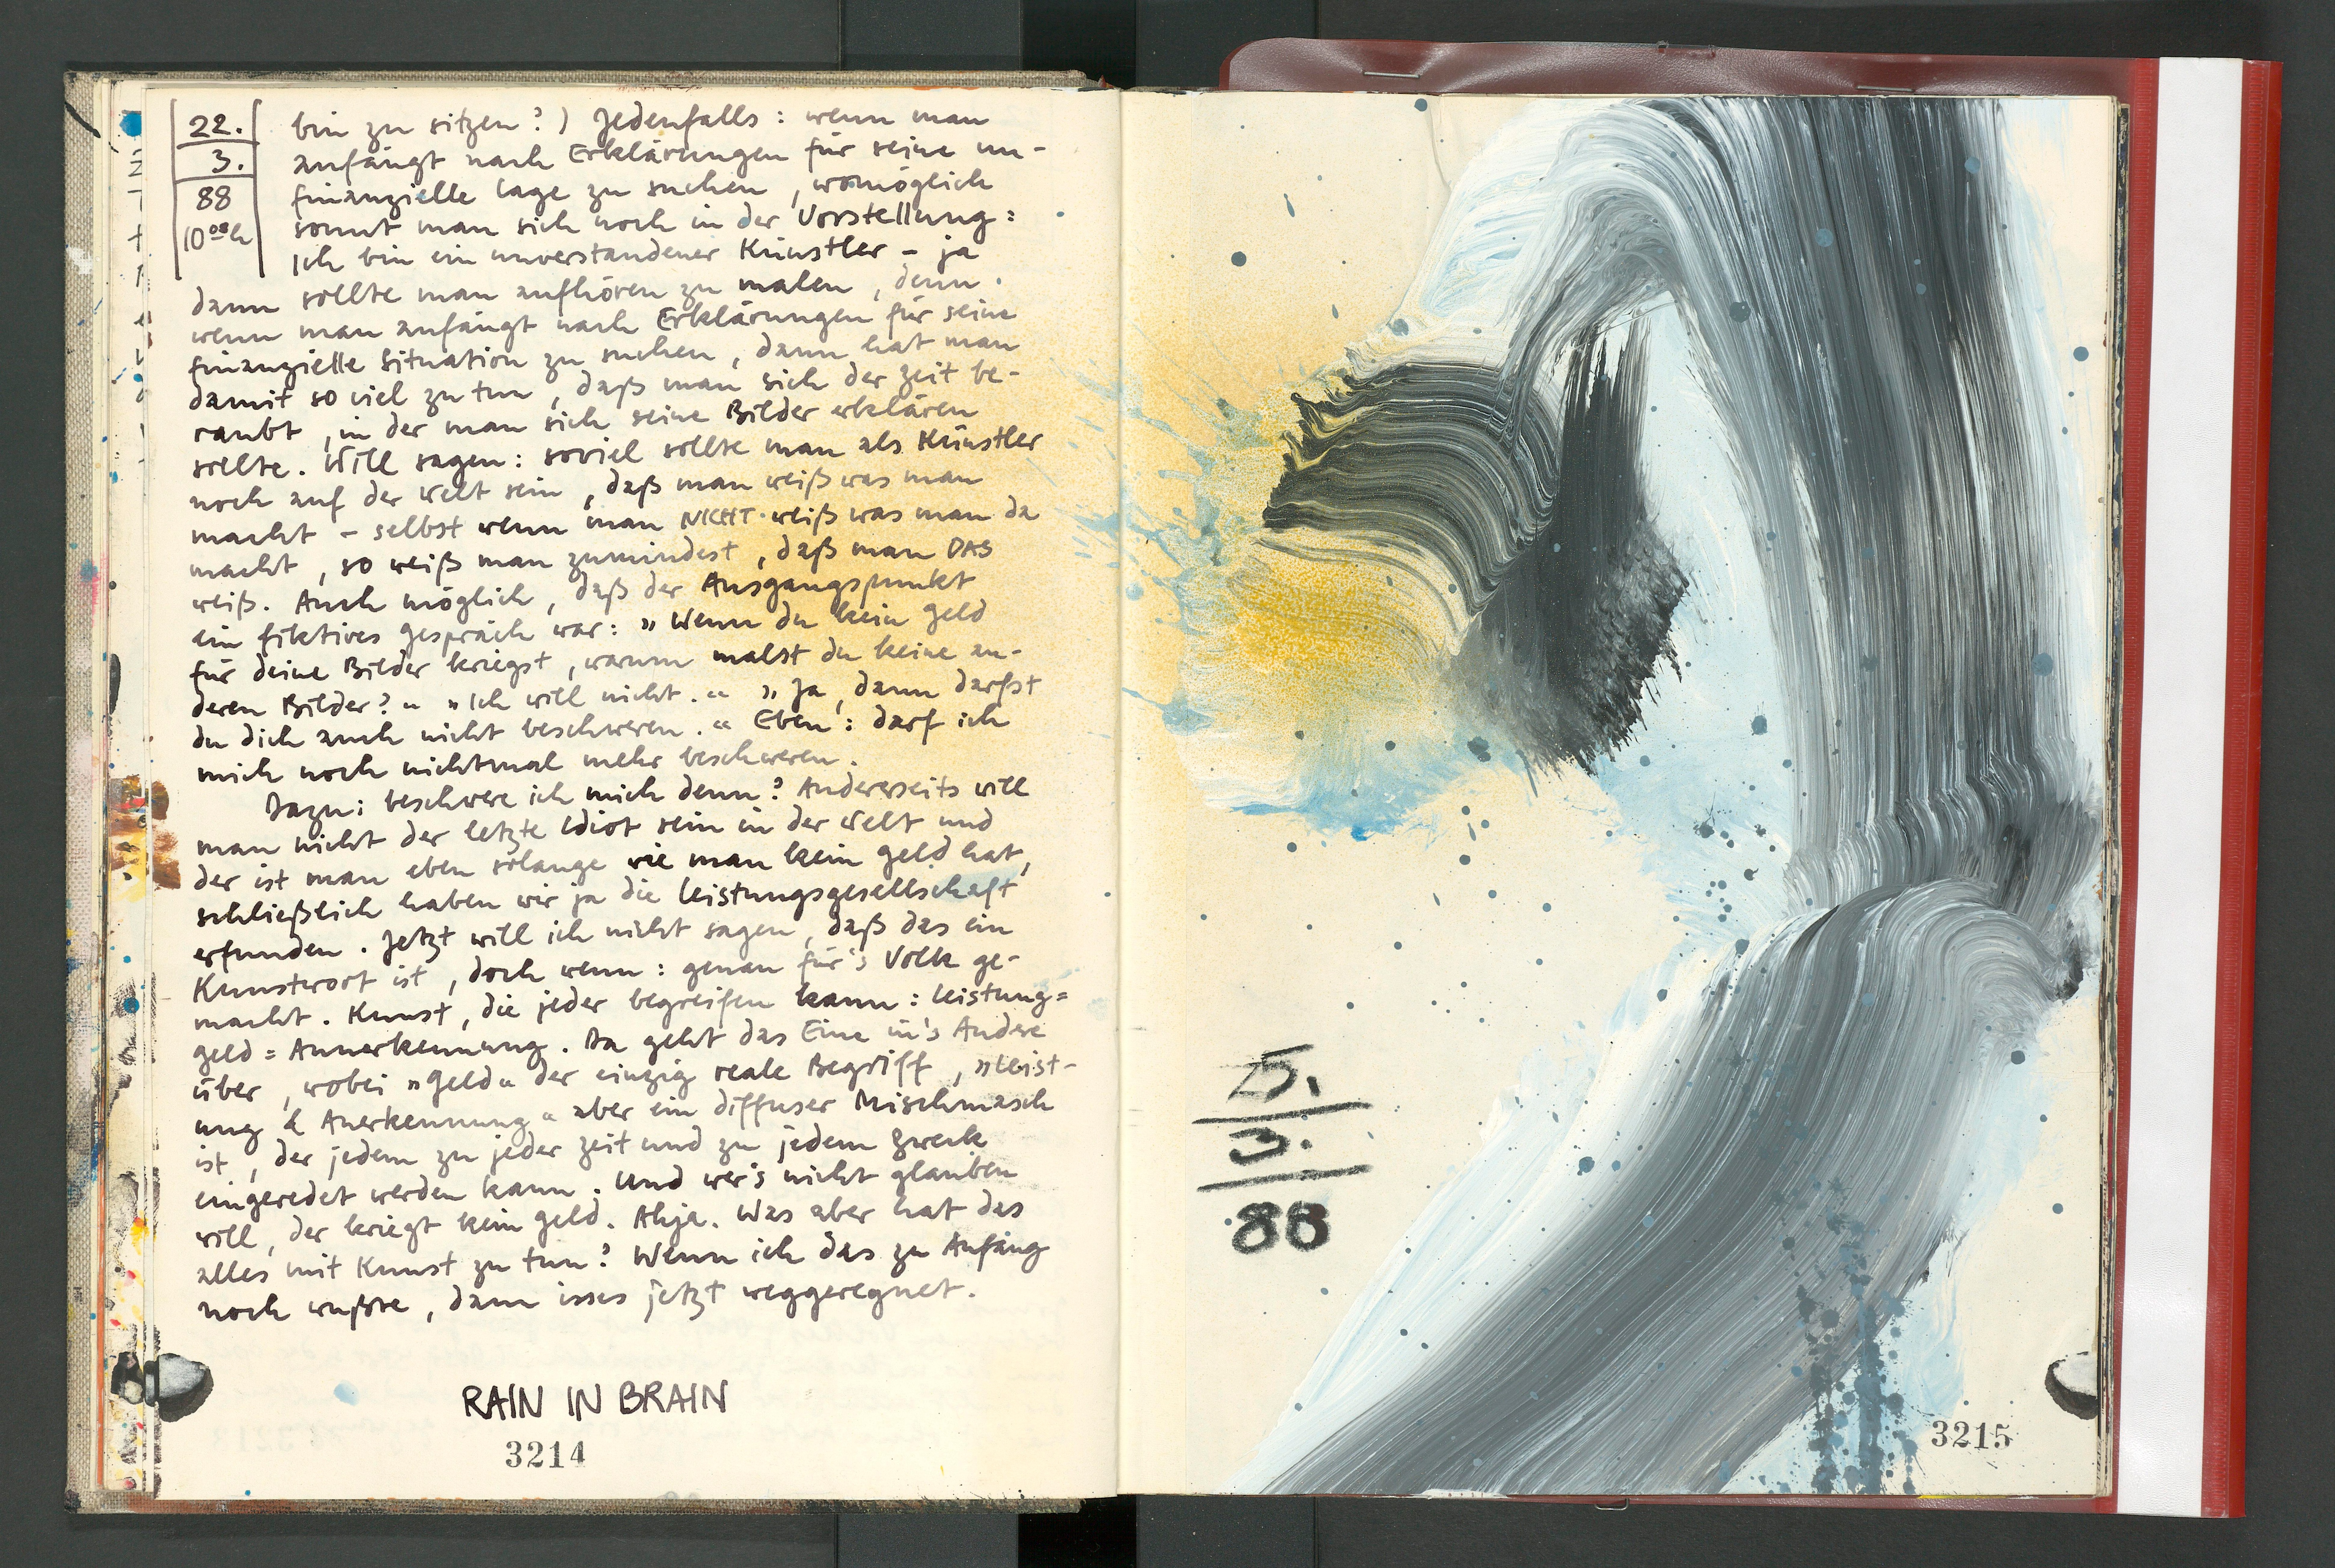 22.
3.
88
10 00 h
bin zu sitzen?) Jedenfalls: wenn man
anfängt nach Erklärungen für seine un-
finanzielle Lage zu suchen, womöglich
sonnt man sich noch in der Vorstellung:
Ich bin ein unverstandener Künstler – ja
dann sollte man aufhören zu malen, denn
wenn man anfängt nach Erklärungen für seine
finanzielle Situation zu suchen, dann hat man
damit so viel zu tun, daß man sich der Zeit be-
raubt, in der man sich seine Bilder erklären
sollte. Will sagen: soviel sollte man als Künstler
noch auf der Welt sein, daß man weiß was man
macht – selbst wenn man NICHT weiß was man da
macht, so weiß man zumindest, daß man DAS
weiß. Auch möglich, daß der Ausgangspunkt
ein fiktives Gespräch war: »Wenn du kein Geld
für deine Bilder kriegst, warum malst du keine an-
deren Bilder?« »Ich will nicht.« »Ja, dann darfst
du dich auch nicht beschweren.« Eben: darf ich
mich noch nichtmal mehr beschweren.
Dazu: beschwere ich mich denn? Andererseits will
man nicht der letzte Idiot sein in der Welt und
der ist man eben solange wie man kein Geld hat,
schließlich haben wir ja die Leistungsgesellschaft
erfunden. Jetzt will ich nicht sagen, daß das ein
Kunstwort ist, doch wenn: genau für's Volk ge-
macht. Kunst, die jeder begreifen kann: Leistung=
Geld = Annerkennung. Da geht das Eine in's Andere
über, wobei »Geld« der einzig reale Begriff, »Leist-
ung & Anerkennung« aber ein diffuser Mischmasch
ist, der jedem zu jeder Zeit und zu jedem Zweck
eingeredet werden kann. Und wer's nicht glauben
will, der kriegt kein Geld. Ahja. Was aber hat das
alles mit Kunst zu tun? Wenn ich das zu Anfang
noch wußte, dann isses jetzt weggeregnet.
RAIN IN BRAIN
3214
25.
3.
88
3215